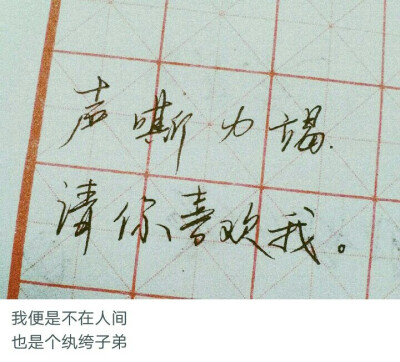 声嘶力竭.
请你喜欢我。
我便是不在人间
也是个纨绔子弟